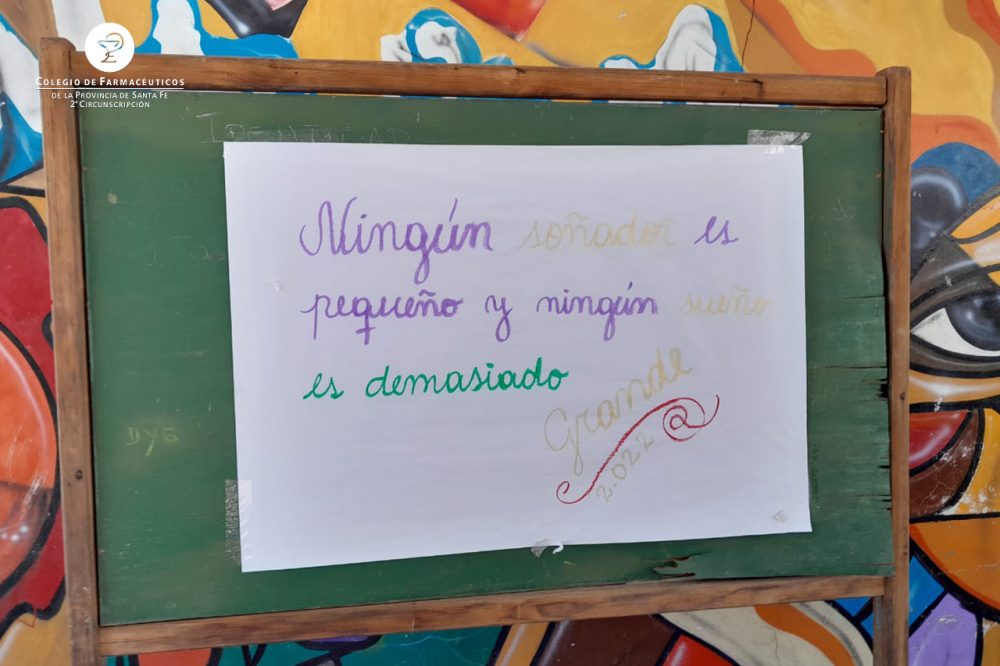 COLEGIO DE FARMACÉUTICOS
DE LA PROVINCIA DE SANTA FE
2ª CIRCUNSCRIPCIÓN
Ningún soñador es
pequeño y ningún sueño
es demasiado
Grande
2.022
DYG